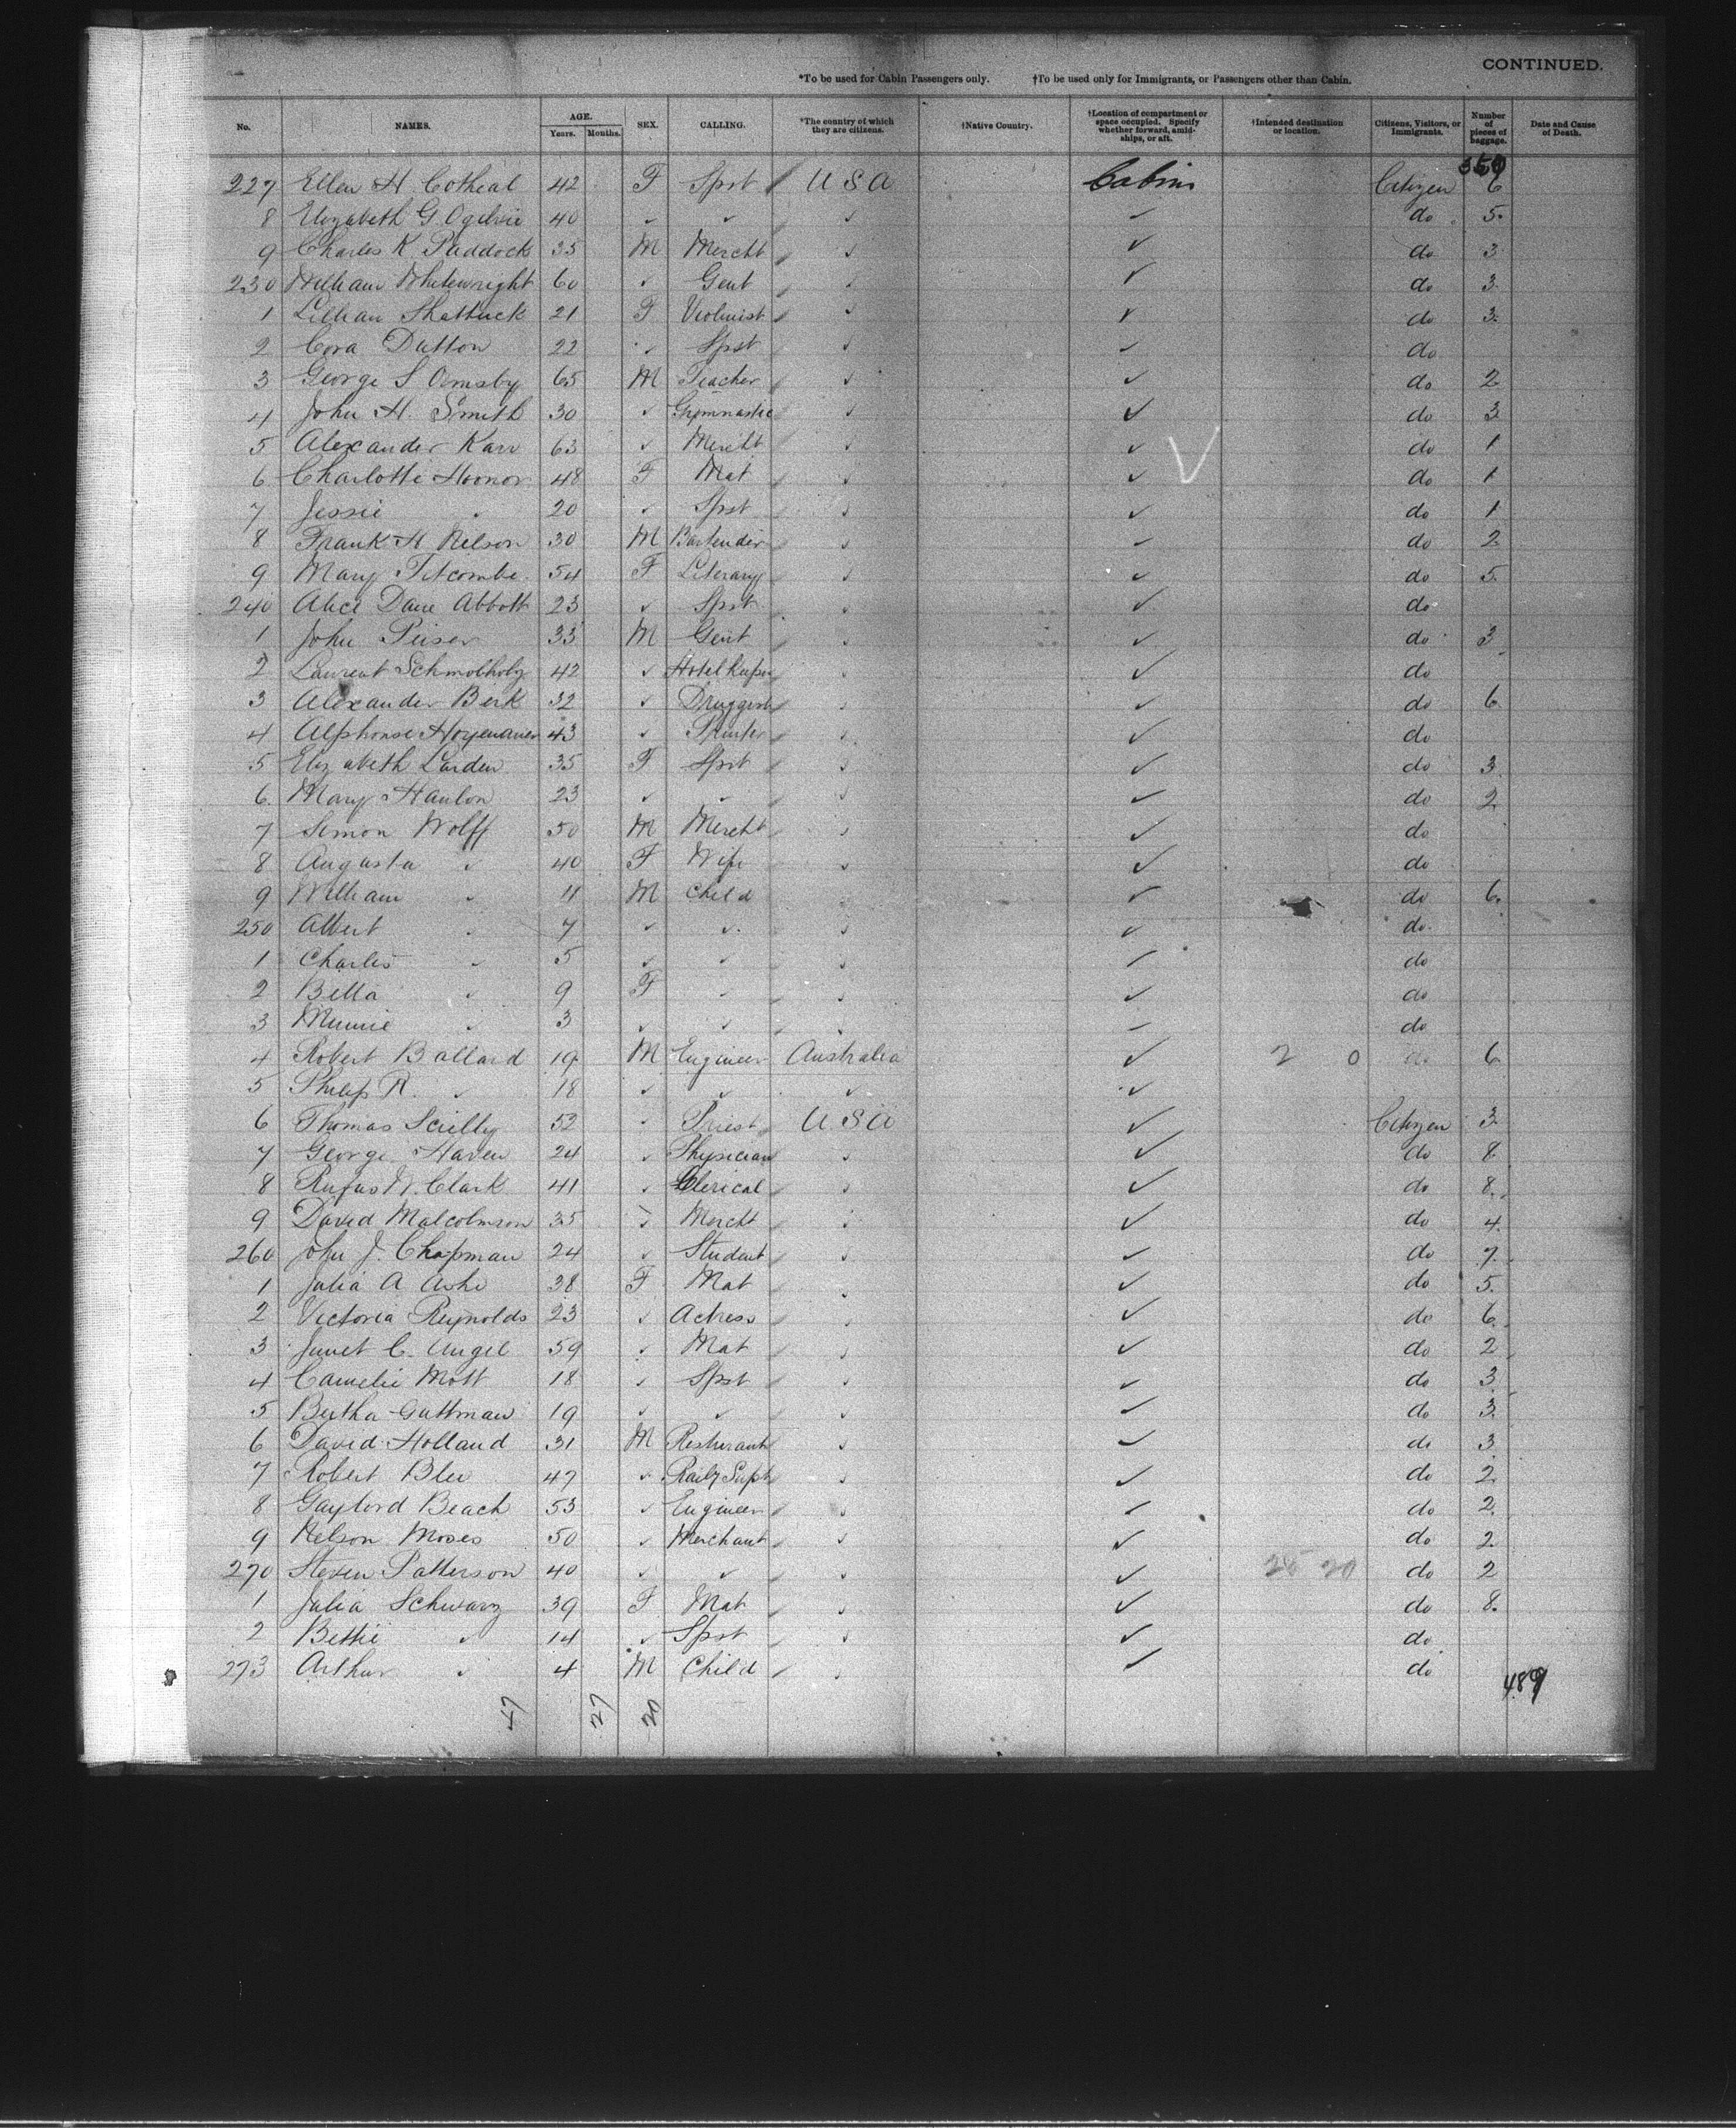 CONTINUED.
*To be used for Cabin Passengers only. †To be used only for Immigrants, or Passengers other than Cabin.
No. NAMES. AGE. Years. Months. SEX. CALLING. *The country of which they are citizens. †Native Country. †Location of compartment or space occupied. Specify whether forward, amidships, or aft. †Intended destination or location. Citizens, Visitors, or Immigrants. Number of pieces of baggage. Date and Cause of Death.
350
227 Ellen H. Cotheal 42 F Spst U S A Cabin Citizen 6
8 Elizabeth G Ogilvie 40 " " " ✓ do 5
9 Charles K Paddock 35 M Mercht " ✓ do 3
230 William Whitewright 60 " Gent " ✓ do 3
1 Lillian Shattuck 21 F Violinist " ✓ do 3
2 Cora Dutton 22 " Spst " ✓ do
3 George S Ormsby 65 M Teacher " ✓ do 2
4 John H. Smith 30 " Gymnastic " ✓ do 3
5 Alexander Karr 63 " Mercht " ✓ do 1
6 Charlotte Hoonor 48 F Mat " ✓ do 1
7 Jessie " 20 " Spst " ✓ do 1
8 Frank H Nelson 30 M Bartender " ✓ do 2
9 Mary Titcombe 54 F Literary " ✓ do 5
240 Alice Dane Abbott 23 " Spst " ✓ do
1 John Peiser 33 M Gent " ✓ do 3
2 Laurent 42 " Hotelkeeper " ✓ do
3 Alexander Berk 32 " Druggist " ✓ do 6
4 Alphonse 43 " " ✓ do
5 Elizabeth Larden 35 F Spst " ✓ do 3
6 Mary Hanlon 23 " " " ✓ do 2
7 Simon Wolff 50 M Mercht " ✓ do
8 Augusta " 40 F Wife " ✓ do
9 William " 11 M Child " ✓ do 6
250 Albert " 7 " " " ✓ do
1 Charles " 5 " " " ✓ do
2 Bella " 9 F " " ✓ do
3 Minnie " 3 " " " ✓ do
4 Robert Ballard 19 M Engineer Australia ✓ 2 0 do 6
5 Philip R. " 18 " " " ✓
6 Thomas Scully 52 " Priest U S A ✓ Citizen 3
7 George Haven 24 " Physician " ✓ do 8
8 Rufus W. Clark 41 " Clerical " ✓ do 8
9 David Malcolmson 35 " Mercht " ✓ do 4
260 John J. Chapman 24 " Student " ✓ do 7
1 Julia A Ashe 38 F Mat " ✓ do 5
2 Victoria Reynolds 23 " Actress " ✓ do 6
3 Janet C. Angel 59 " Mat " ✓ do 2
4 Camelie Mott 18 " Spst " ✓ do 3
5 Bertha Guttman 19 " " " ✓ do 3
6 David Holland 31 M Resturant " ✓ do 3
7 Robert Blee 47 " Raily Supt " ✓ do 2
8 Gaylord Beach 53 " Engineer " ✓ do 2
9 Nelson Moses 50 " Merchant " ✓ do 2
270 Steven Patterson 40 " " " ✓ 26 20 do 2
1 Julia Schwarz 39 F Mat " ✓ do 8
2 Bettie " 14 " Spst " ✓ do
273 Arthur " 4 M Child " ✓ do
489
47 27 20